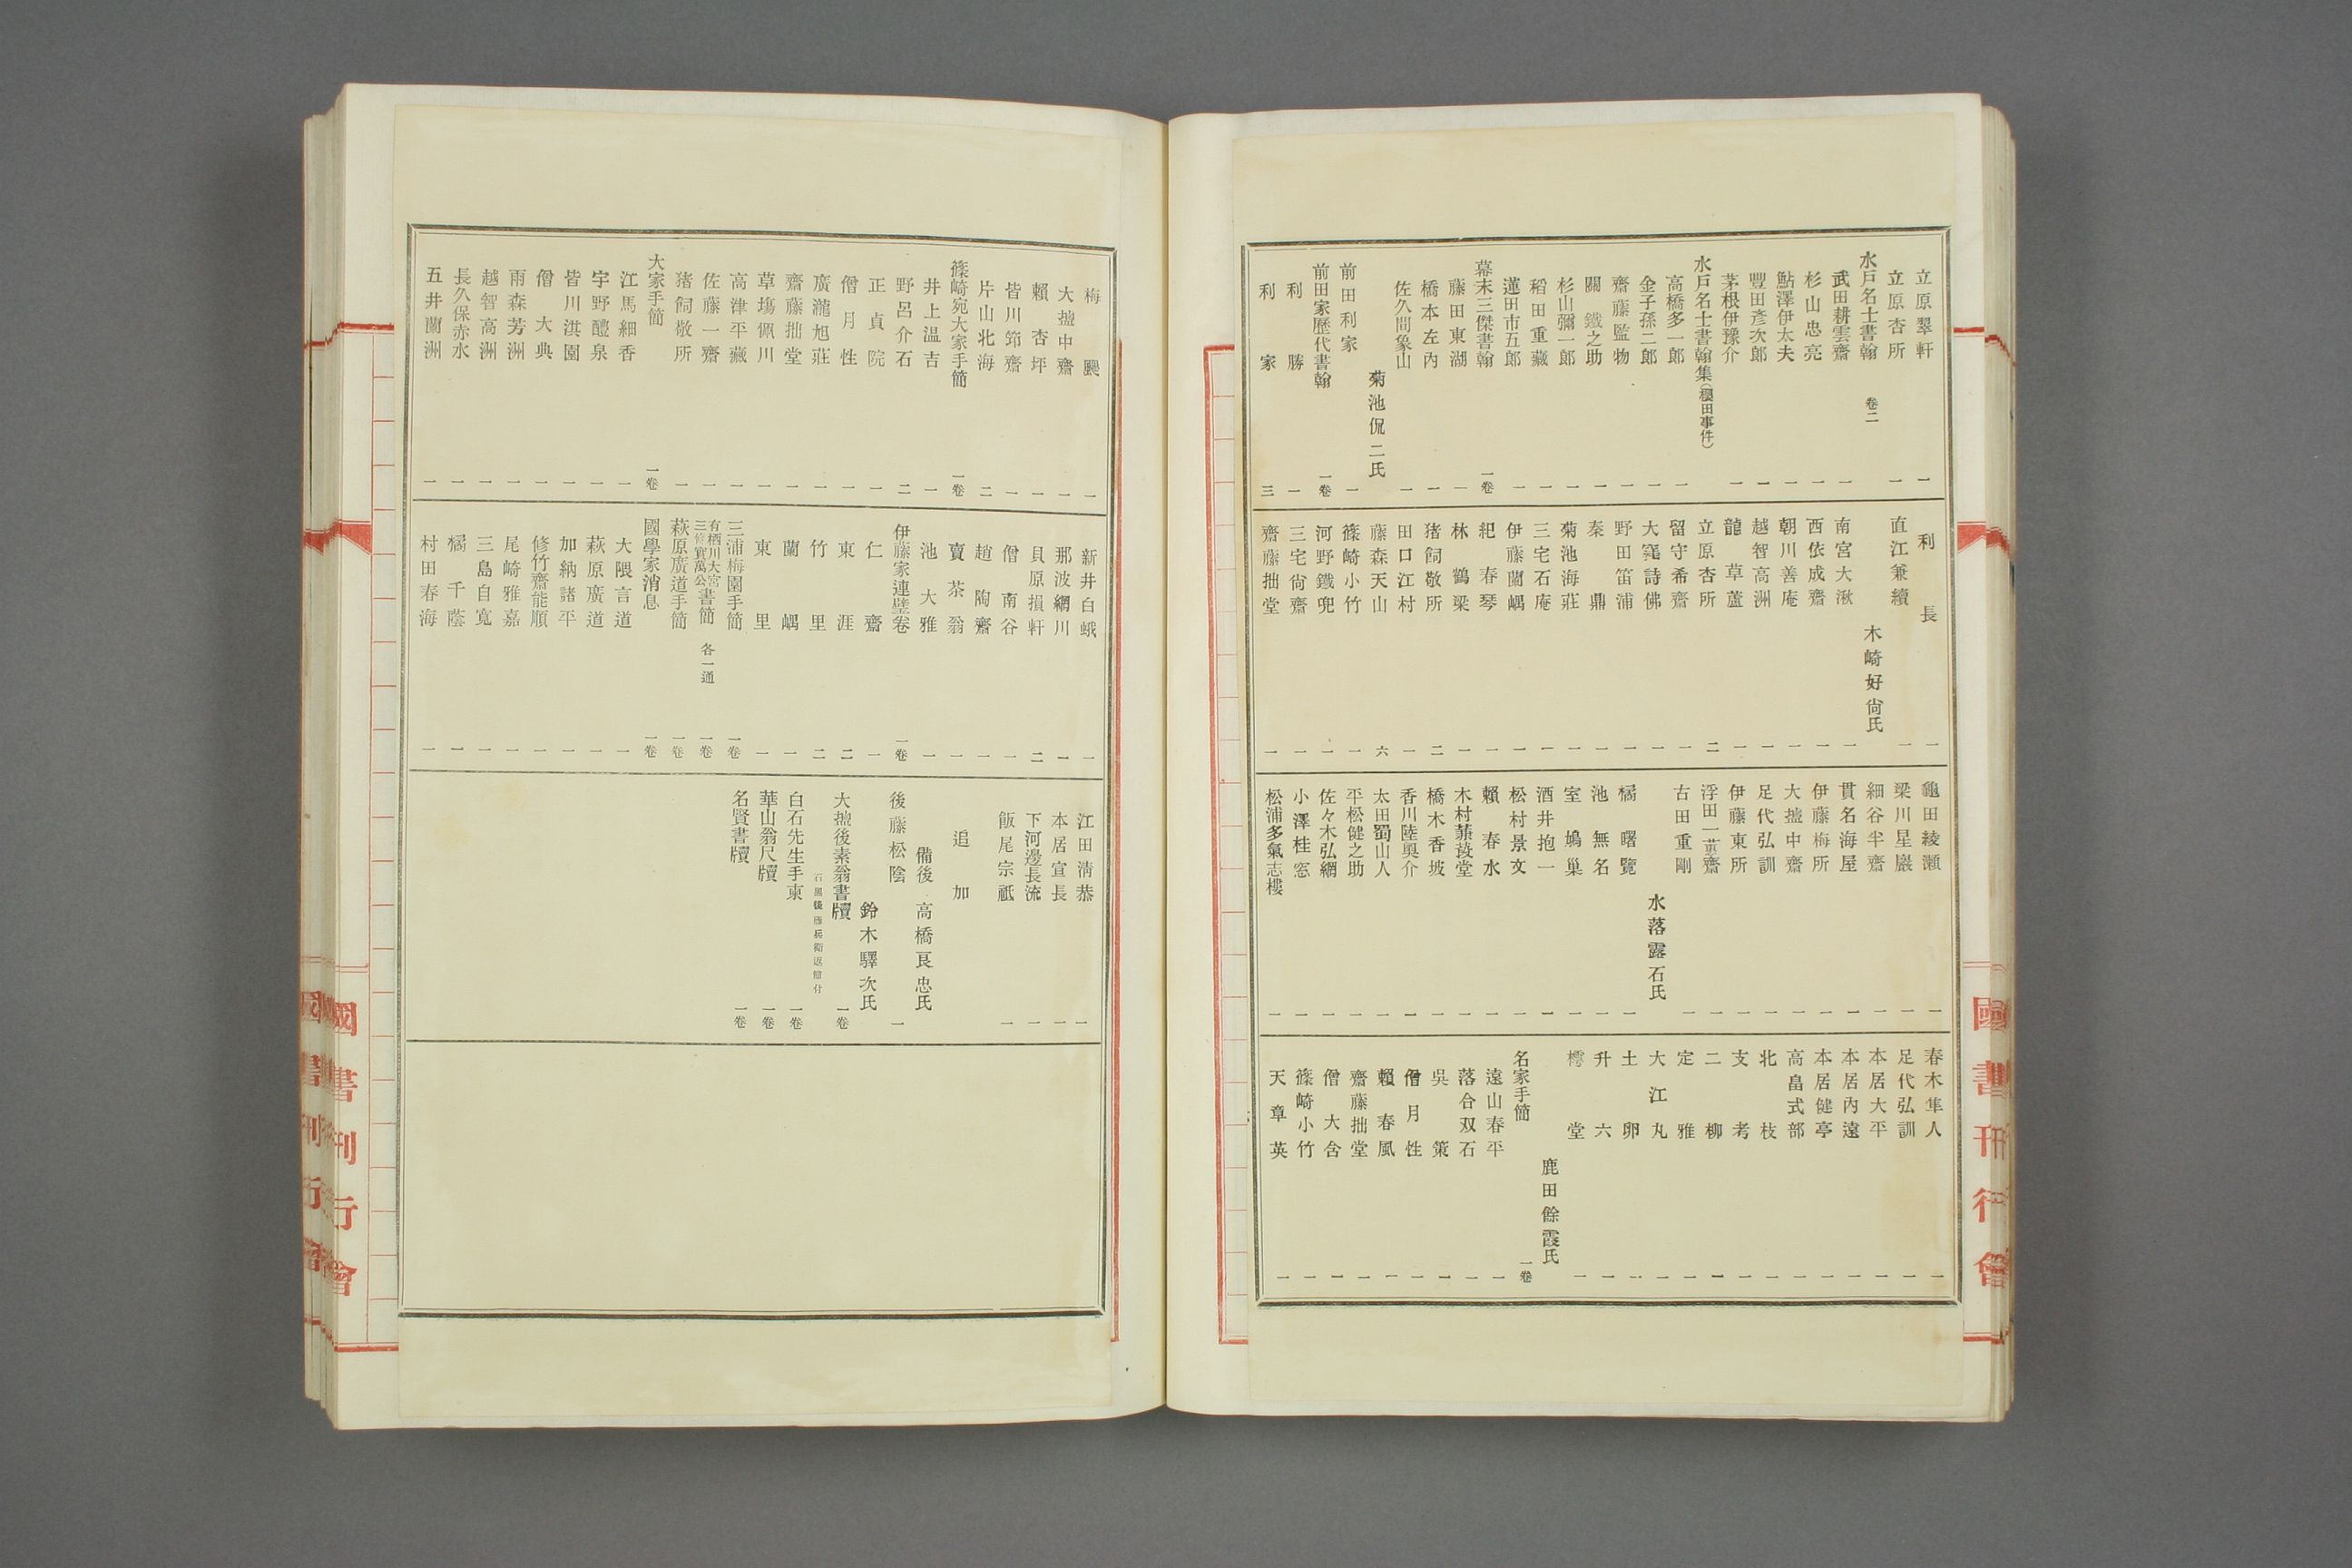 立原翠軒 一
立原杏所 一
水戸名士書翰 卷二
武田耕雲齋 一
杉山忠亮 一
鮎澤伊太夫 一
豐田彥次郎 一
茅根伊豫介 一
水戸名士書翰集(櫻田事件)
高橋多一郎 一
金子孫二郎 一
齋藤監物 一
關鐵之助 一
杉山彌一郎 一
稻田重藏 一
蓮田市五郎 一
幕末三傑書翰 一卷
藤田東湖 一
橋本左內 一
佐久間象山 一
菊池侃二氏
前田利家 一
前田家歷代書翰 一卷
利勝 一
利家 三
利長 一
直江兼續 一
木崎好尙氏
南宮大湫 一
西依成齋 一
朝川善庵 一
越智高洲 一
龍草蘆 一
立原杏所 二
留守希齋 一
大窪詩佛 一
野田笛浦 一
秦鼎 一
菊池海莊 一
三宅石庵 一
伊藤蘭嵎 一
紀春琴 一
林鶴梁 一
猪飼敬所 二
田口江村 一
藤森天山 六
篠崎小竹 一
河野鐵兜 一
三宅尙齋 一
齋藤拙堂 一
龜田綾瀬 一
梁川星巖 一
細谷半齋 一
貫名海屋 一
伊藤梅所 一
大盬中齋 一
足代弘訓 一
伊藤東所 一
浮田一蕙齋 一
古田重剛 一
水落露石氏
橘曙覽 一
池無名 一
室鳩巢 一
酒井抱一 一
松村景文 一
賴春水 一
木村蒹葭堂 一
橋木香坡 一
香川陸奧介 一
太田蜀山人 一
平松健之助 一
佐々木弘綱 一
小澤桂窓 一
松浦多氣志樓 一
春木隼人 一
足代弘訓 一
本居大平 一
本居內遠 一
本居健亭 一
高畠式部 一
北枝 一
支考 一
二柳 一
定雅 一
大江丸 一
土卵 一
升六 一
樗堂 一
鹿田餘霞氏
名家手簡 一卷
遠山春平 一
落合双石 一
吳策 一
僧月性 一
賴春風 一
齋藤拙堂 一
僧大含 一
篠崎小竹 一
天章英 一
梅颸 一
大盬中齋 一
賴杏坪 一
皆川節齋 一
片山北海 二
篠崎宛大家手簡 一卷
井上溫吉 一
野呂介石 二
正貞院 一
僧月性 一
廣瀧旭莊 一
齋藤拙堂 一
草塲佩川 一
高津平藏 一
佐藤一齋 一
猪飼敬所 一
大家手簡 一卷
江馬細香 一
宇野醴泉 一
皆川淇園 一
僧大典 一
雨森芳洲 一
越智高洲 一
長久保赤水 一
五井蘭洲 一
新井白蛾 一
那波網川 一
貝原損軒 二
僧南谷 一
趙陶齋 一
賣茶翁 一
池大雅 一
伊藤家連璧卷 一卷
仁齋 一
東涯 二
竹里 二
蘭嵎 一
東里 一
三浦梅園手簡 一卷
有栖川大宮
三條實萬公書簡 各一通 一卷
萩原廣道手簡 一卷
國學家消息 一卷
大隈言道 一
萩原廣道 一
加納諸平 一
修竹齋能順 一
尾崎雅嘉 一
三島自寬 一
橘千蔭 一
村田春海 一
江田淸恭 一
本居宣長 一
下河邊長流 一
飯尾宗祇 一
追加
備後 高橋良忠氏
後藤松陰 一
鈴木驛次氏
大盬後素翁書牘 一卷
白石先生手柬 一卷
華山翁尺牘 一卷
名賢書牘 一卷
國書刊行會
國書刊行會